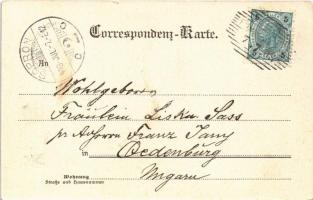 Correspondenz-Karte.
SOPRON
5 5
An
Wohlgeboren
Fräulein Liska Sass
pr Adr Herrn Franz Jany
in Oedenburg
Ungarn
Wohnung
Straße und Hausnummer